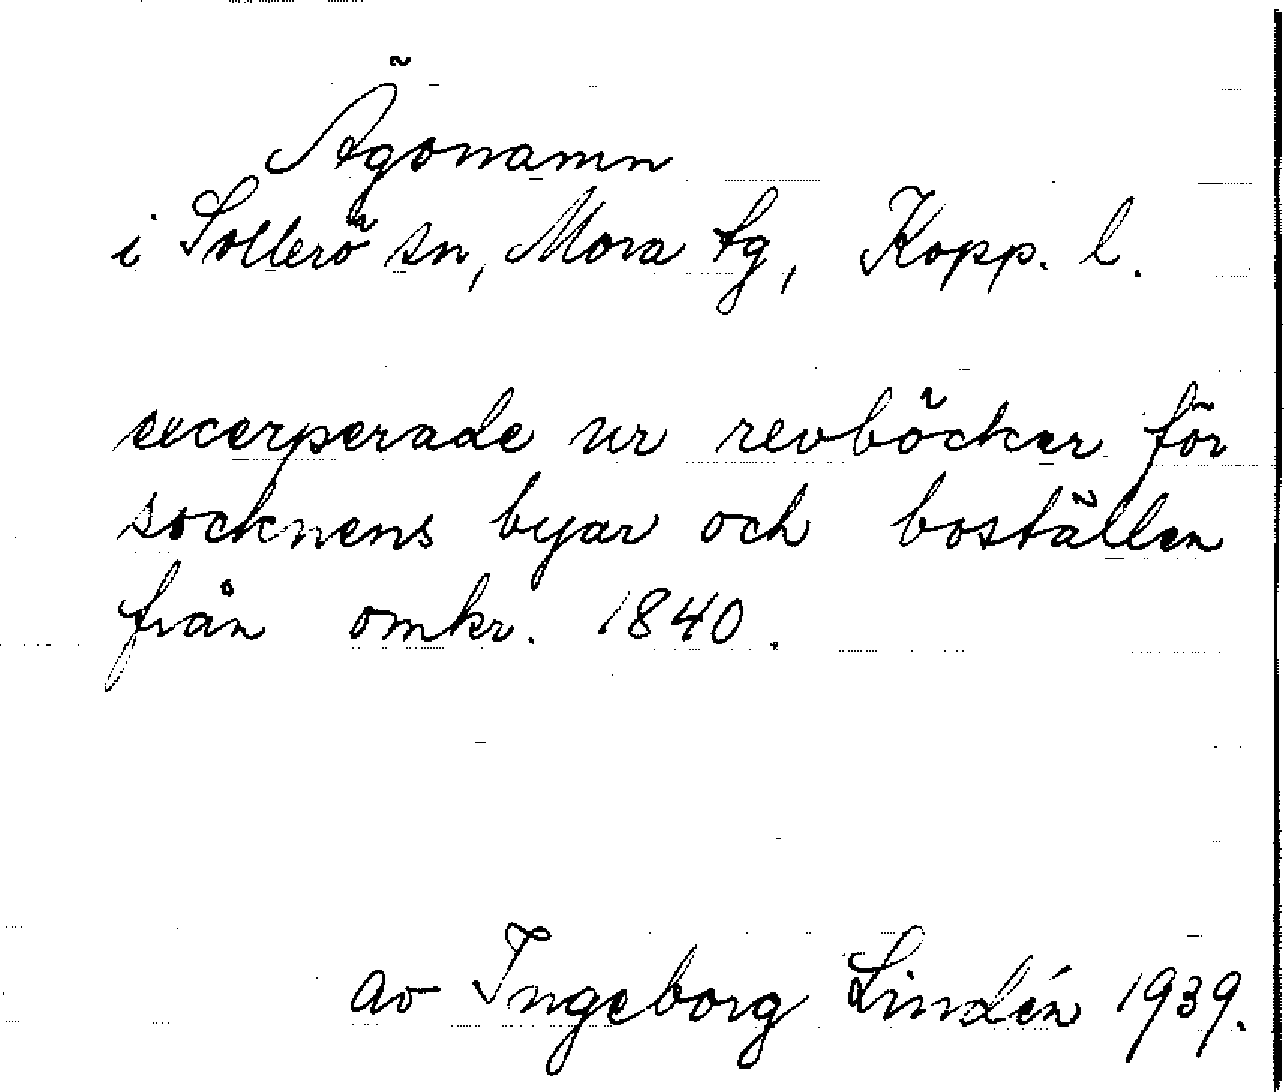 Ägonamn
i Sollerö sn, Mora tg, Kopp. l.
excerperade ur revböcker för
socknens byar och boställen
från omkr. 1840.
av Ingeborg Lindén 1939.